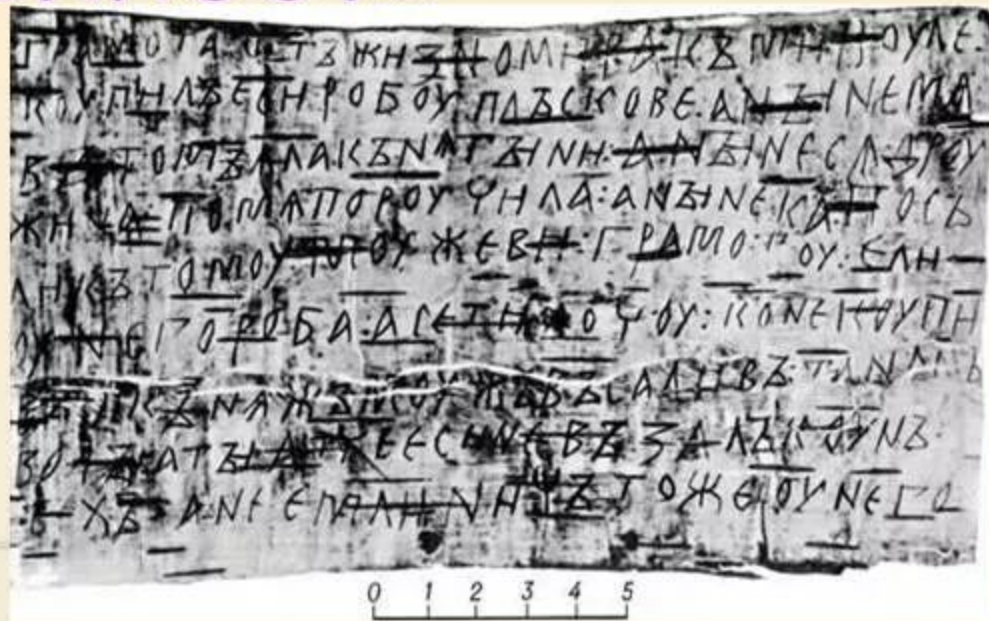 ГРАМОТА:ѠТЪЖИЗНОМИРА:КЪМИКОУЛЕ:
КОУПИЛЪЕСИ:РОБОУ:ПЛЪСКОВЕ:АНЪІНЕМѦ:
ВЪТОМЪ:ѦЛАКЪНѦГЪІНИ:АНЪІНЕСѦДРОУ
ЖИНА:ПОМѦПОРОУЧИЛА:АНЪІНЕКА:ПОСЪ
ЛИКЪТОМОУ:МОУЖЕВИ:ГРАМОТОУ:ЕЛИ
ОУНЕГОРОБА:АСЕТИХОЧОУ:КОНЕКОУПИ
ВЪ:ИКЪНѦЖЪМОУЖЪВЪСАДИВЪ:ТАНАСЪ
ВОДЪІ:АТЪІАТЧЕЕСИНЕВЪЗАЛЪКОУНЪ:
ТЕХЪ:АНЕЕМЛИ:НИЧЪТОЖЕОУНЕГО:
0 1 2 3 4 5